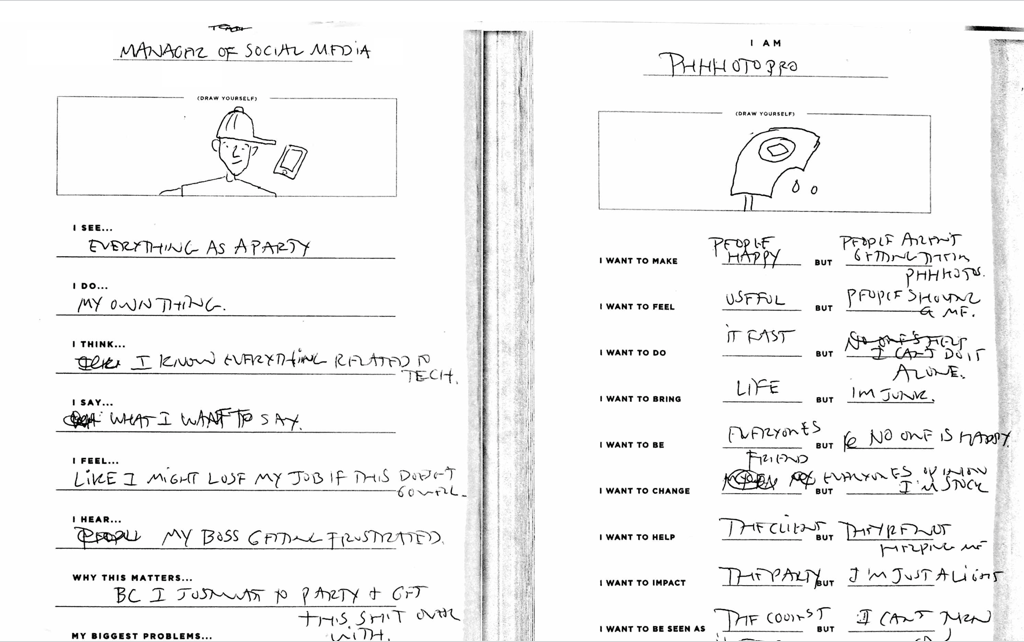 MANAGER OF SOCIAL MEDIA
(DRAW YOURSELF)
I SEE...
EVERYTHING AS A PARTY
I DO...
MY OWN THING.
I THINK...
I KNOW EVERYTHING RELATED TO
TECH.
I SAY...
WHAT I WANT TO SAY.
I FEEL...
LIKE I MIGHT LOSE MY JOB IF THIS DOESN'T
GO WELL.
I HEAR...
PEOPLE MY BOSS GETTING FRUSTRATED.
WHY THIS MATTERS...
BC I JUST WANT TO PARTY + GET
THIS SHIT OVER
WITH.
MY BIGGEST PROBLEMS...
I AM
PHHHOTO PRO
(DRAW YOURSELF)
I WANT TO MAKE PEOPLE HAPPY BUT PEOPLE AREN'T
GETTING THEIR
PHHHOTOS.
I WANT TO FEEL USEFUL BUT PEOPLE SHOVING
ME.
I WANT TO DO IT FAST BUT NO ONE'S HELP
I CAN'T DO IT
ALONE.
I WANT TO BRING LIFE BUT IM JUNK.
I WANT TO BE EVERYONES
FRIEND BUT NO ONE IS HAPPY.
I WANT TO CHANGE EVERYONES OPINION
BUT I'M STUCK
I WANT TO HELP THE CLIENT BUT THEY'RE NOT
HELPING ME
I WANT TO IMPACT THE PARTY BUT I'M JUST A LIGHT
I WANT TO BE SEEN AS THE COOLEST BUT I CAN'T